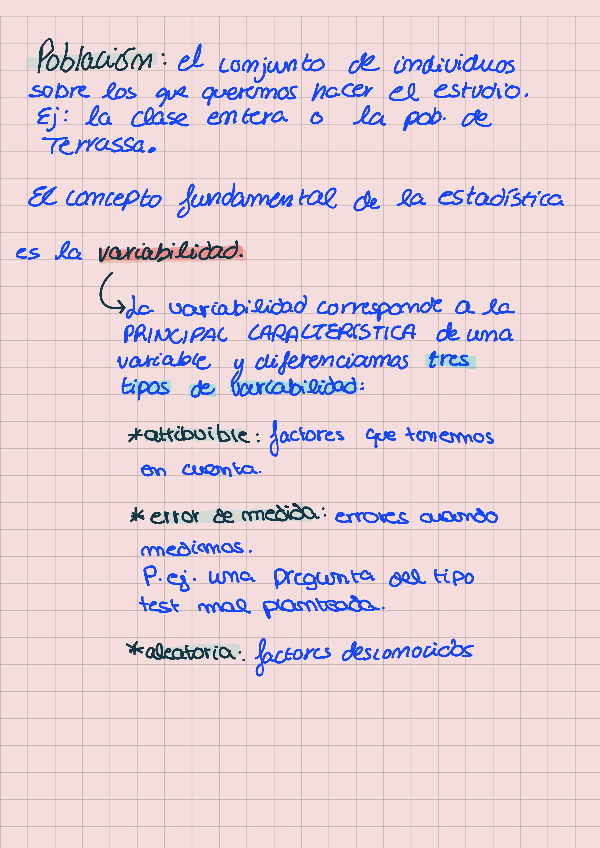 Población: el conjunto de individuos
sobre los que queremos hacer el estudio.
Ej: la clase entera o la pob. de
Terrassa.
El concepto fundamental de la estadística
es la variabilidad.
La variabilidad corresponde a la
PRINCIPAL CARACTERÍSTICA de una
variable y diferenciamos tres
tipos de variabilidad:
*atribuible: factores que tenemos
en cuenta.
* error de medida: errores cuando
medimos.
P.ej. una pregunta del tipo
test mal planteada.
*aleatoria: factores desconocidos